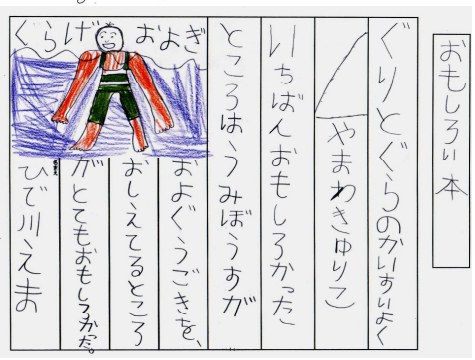 おもしろい本
ぐりとぐらのかいすいよく
(やまわきゆりこ)
いちばんおもしろかった
ところは、うみぼうずが
くらげおよぎ
およぐうごきを、
おしえてるところ
がとてもおもしろかった。
ひで川えま